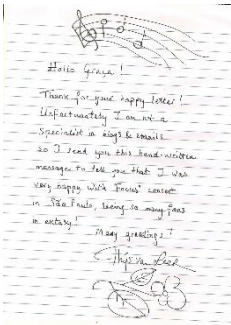 Hallo Graça!
Thank for your happy letter!
Unfortunately I am not a
specialist in blogs & emails
so I send you this hand-written
message to tell you that I was
very happy with Focus' concert
in São Paulo, seeing so many fans
in extasy!
Many greetings!
Thijs van Leer